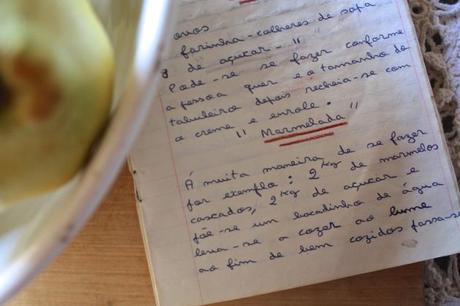 ovos
farinha - colheres de sopa
8 de açucar - " "
Pode-se se fazer conforme
a pessoa quer e o tamanho do
taboleiro depois recheia-se com
o creme e enrole.
" Marmelada "
Á muita maneira de se fazer
por exemplo: 2 kg de marmelos
cascados, 2 kg de açucar e
põe-se um bocadinho de água
leva-se a cozer ao lume
ao fim de bem cozidos passa-se